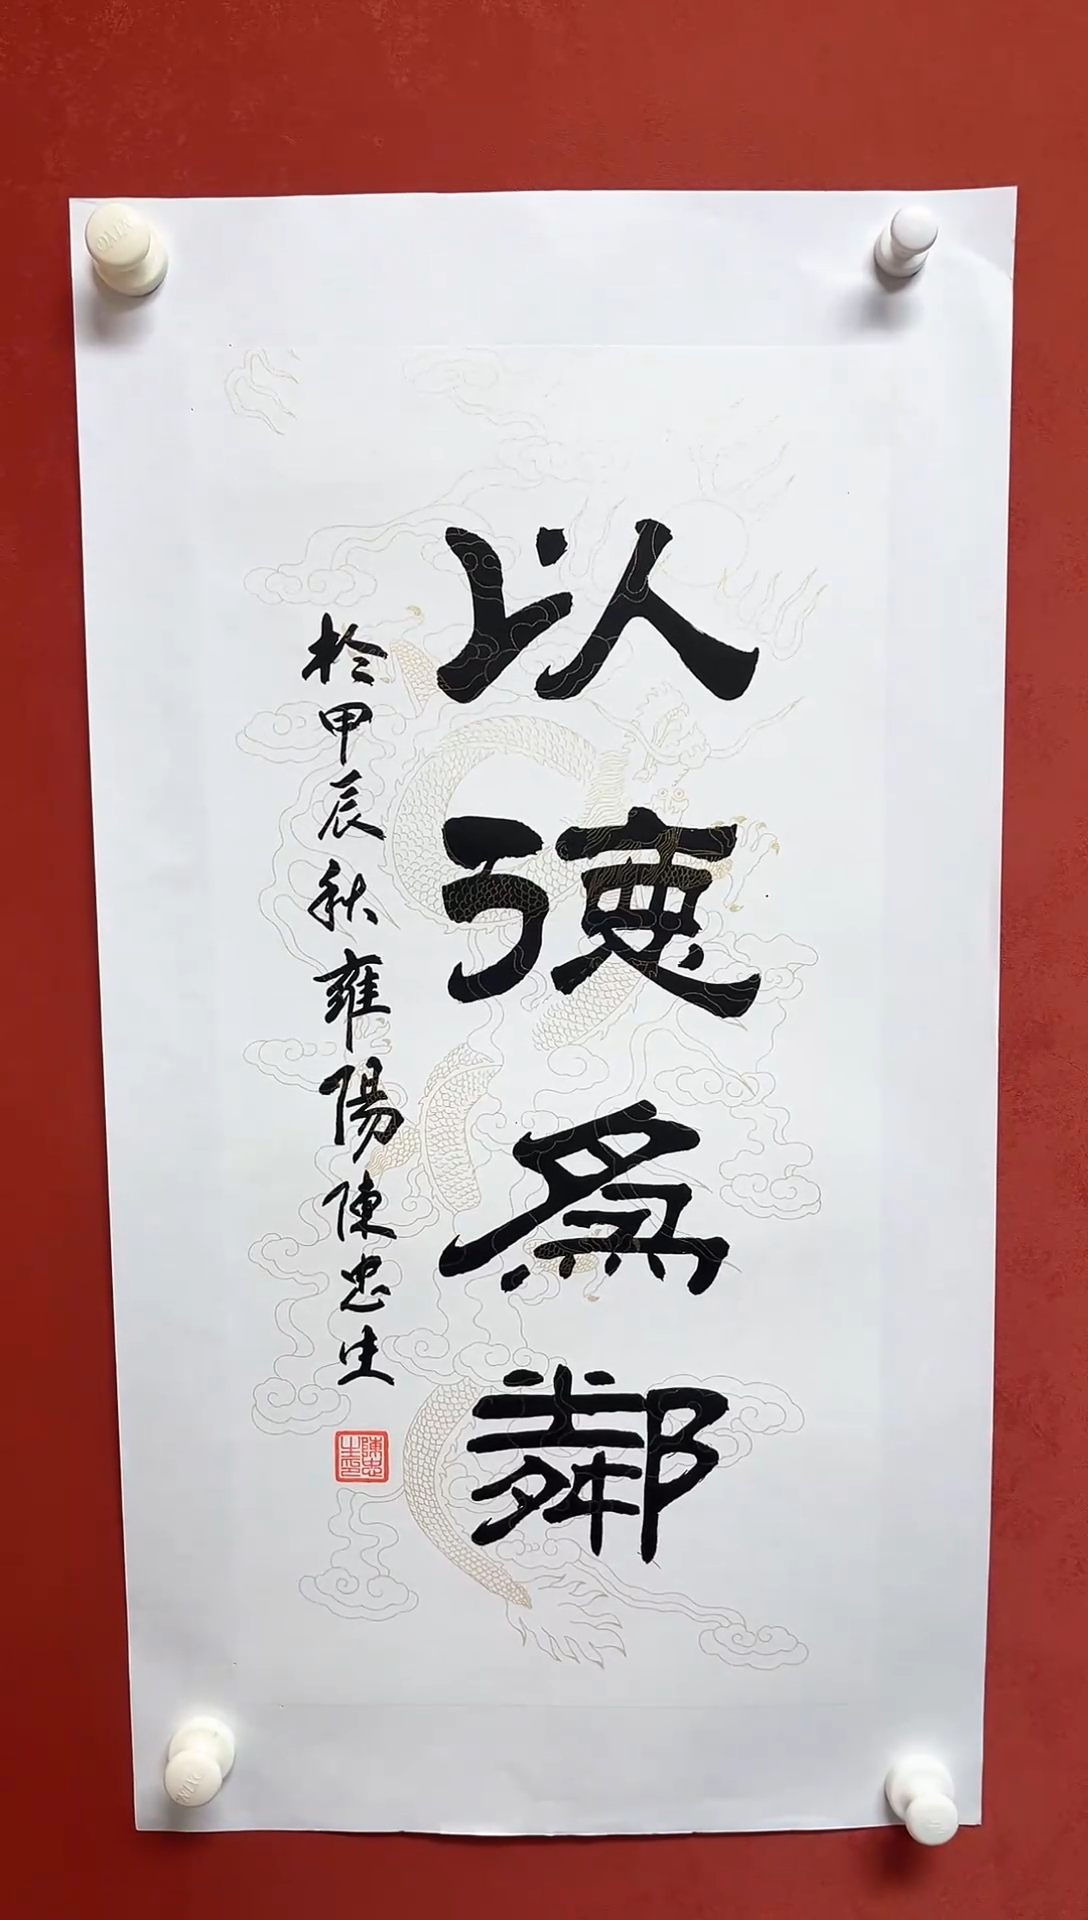 以德為鄰
於甲辰秋雍陽陳忠生
陳忠生印